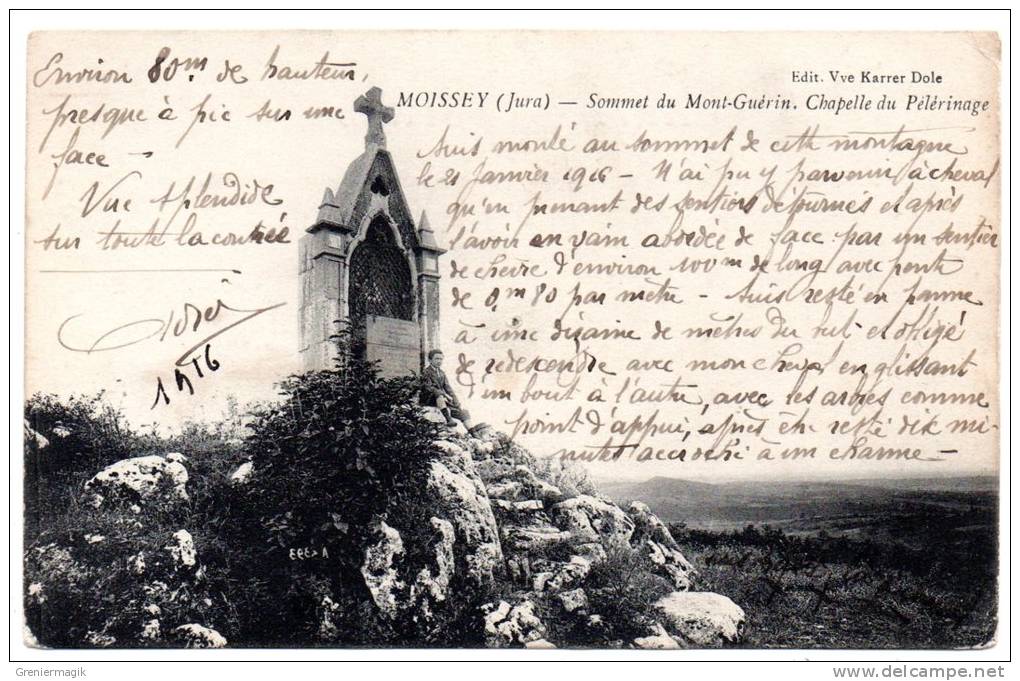 Environ 80m de hauteur,
presque à pic sur une
face -
Vue splendide
sur toute la contrée
1916
Edit. Vve Karrer Dole
MOISSEY (Jura) — Sommet du Mont-Guérin. Chapelle du Pélérinage
Suis monté au sommet de cette montagne
le 21 Janvier 1916 - N'ai pu y parvenir à cheval
qu'en prenant des sentiers détournés et après
l'avoir en vain abordée de face par un sentier
de chèvre d'environ 100m de long avec pente
de 0,m80 par mètre - Suis resté en panne
à une dizaine de mètres du but et obligé
de redescendre avec mon cheval en glissant
d'un bout à l'autre, avec les arbres comme
point d'appui, après être resté dix mi-
nutes accroché à un charme -
Greniermagik
www.delcampe.net